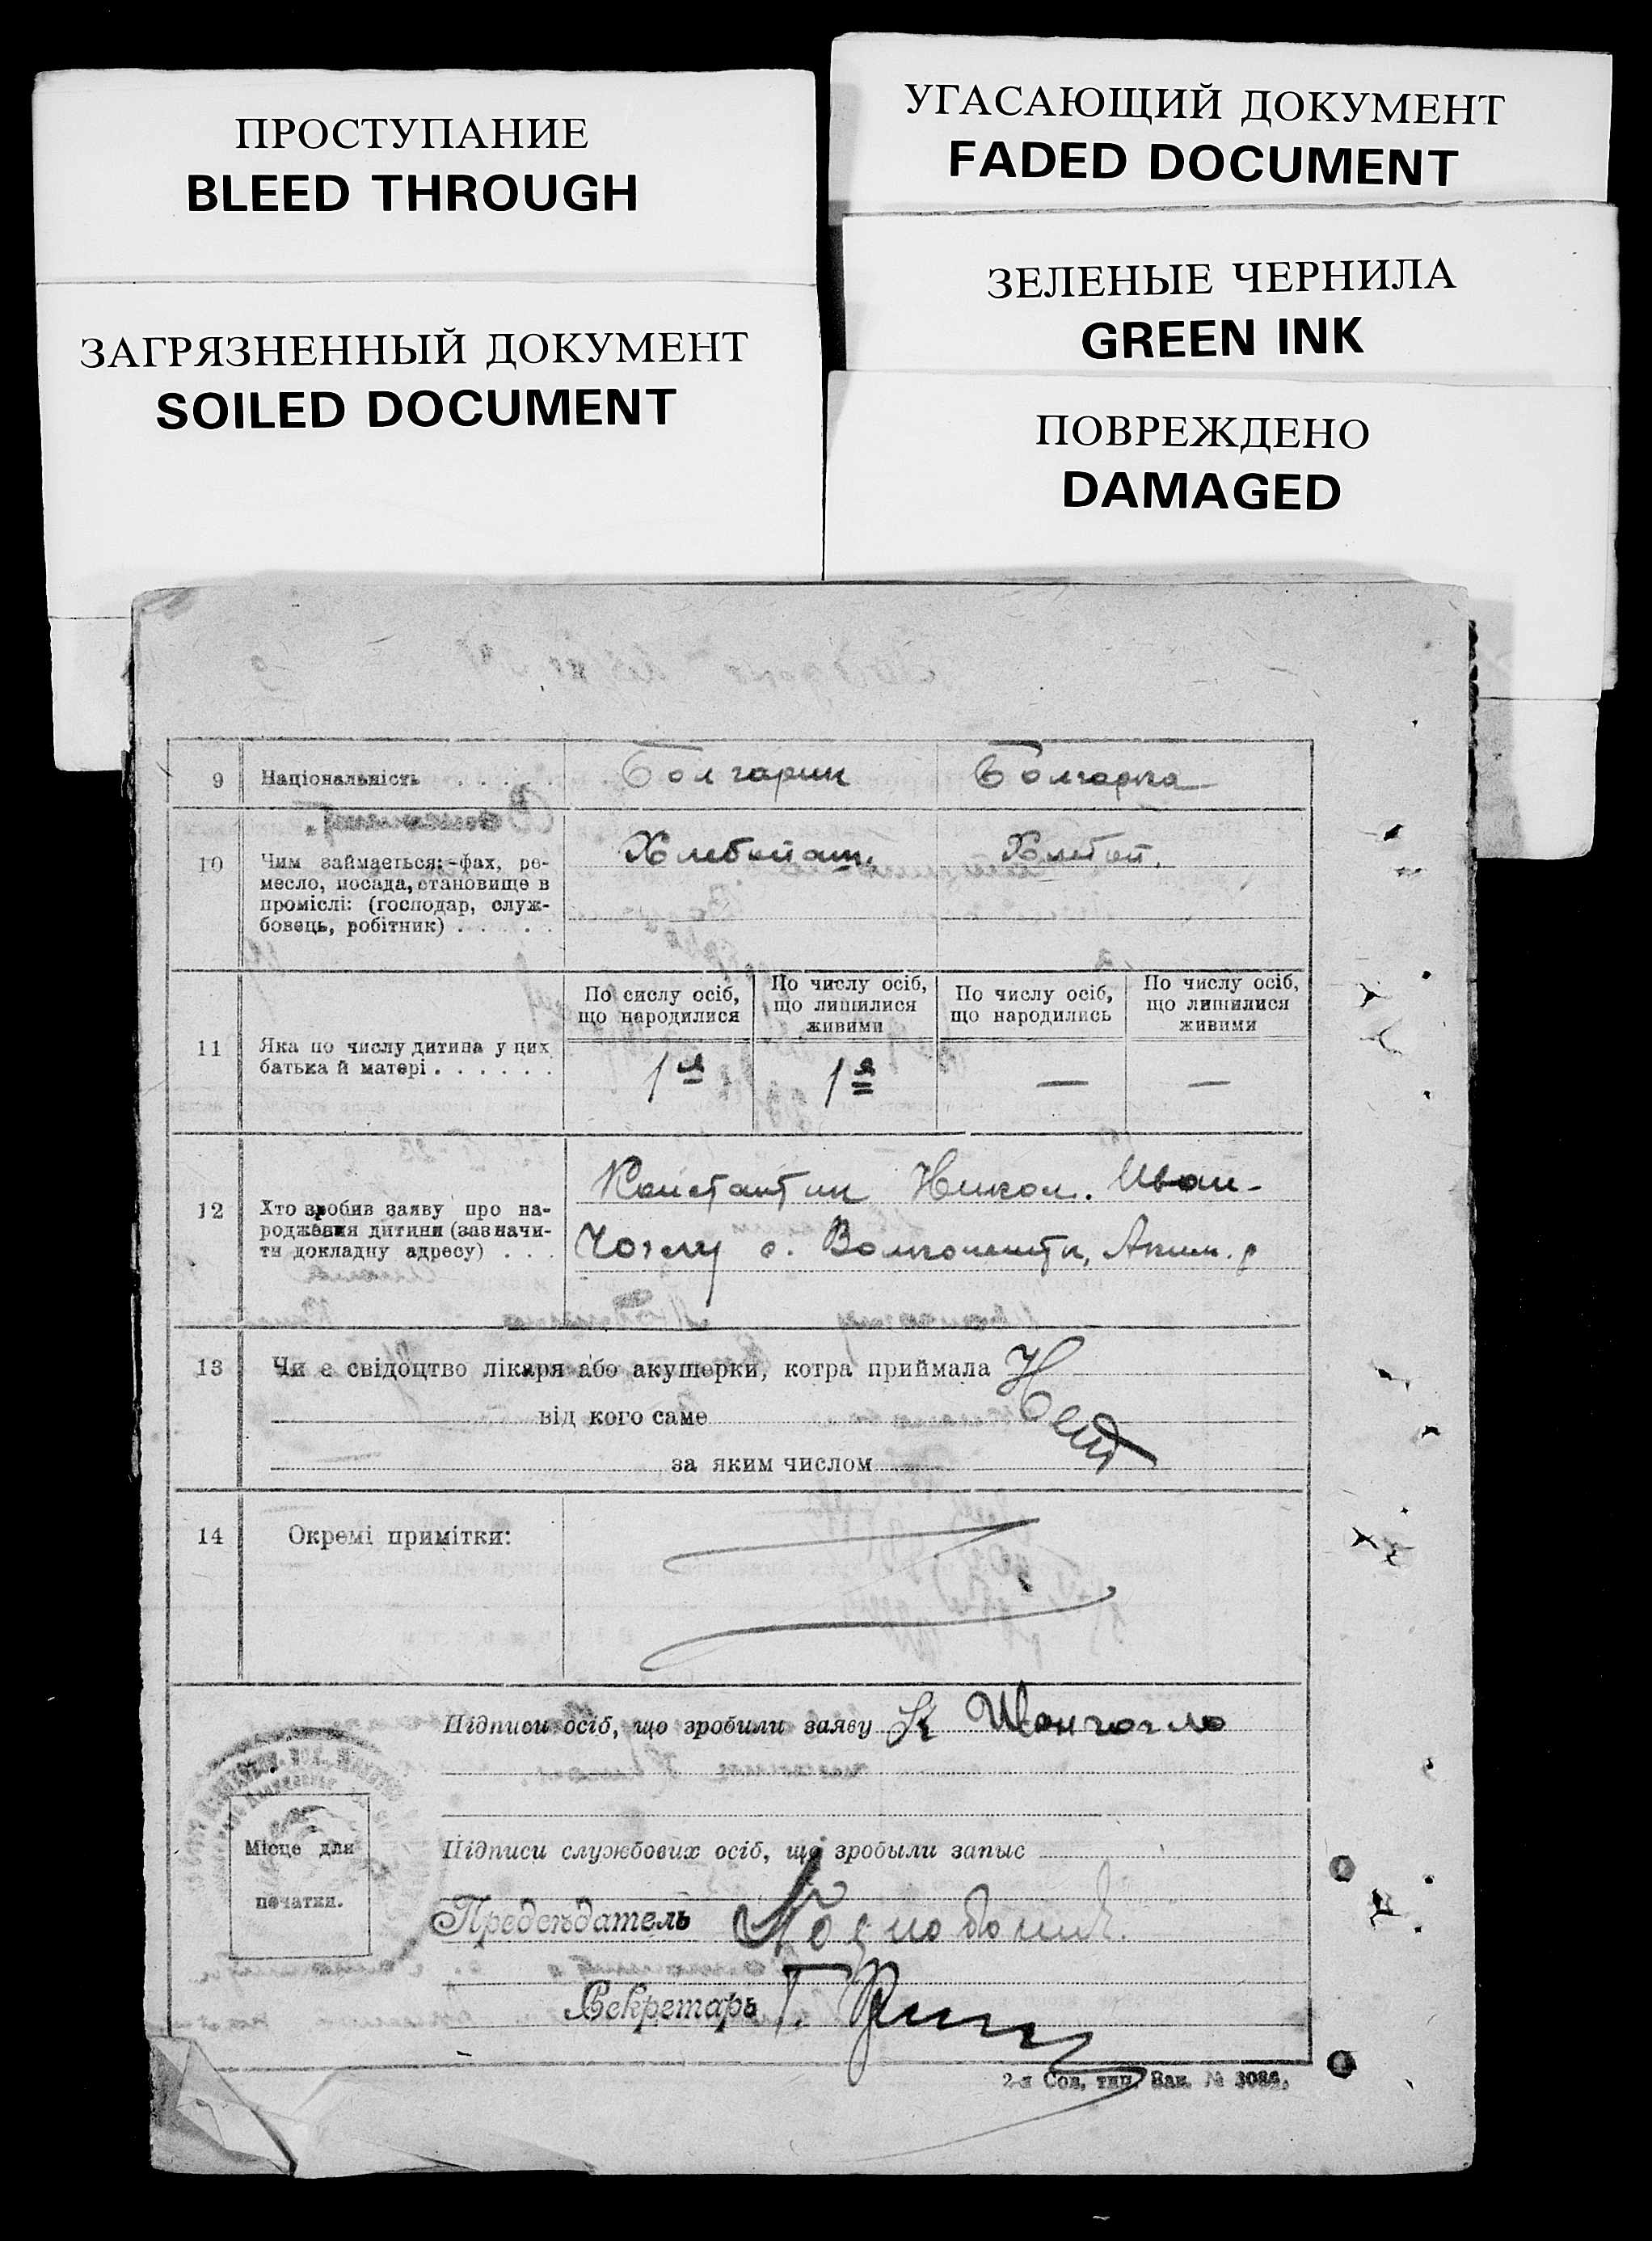 ПРОСТУПАНИЕ
BLEED THROUGH
ЗАГРЯЗНЕННЫЙ ДОКУМЕНТ
SOILED DOCUMENT
УГАСАЮЩИЙ ДОКУМЕНТ
FADED DOCUMENT
ЗЕЛЕНЫЕ ЧЕРНИЛА
GREEN INK
ПОВРЕЖДЕНО
DAMAGED
9 Національність . . . . . Болгарин Болгарка
10 Чим займається:-фах, ре-
месло, посада, становище в
проміслі: (господар, служ-
бовець, робітник) . . . . .
Хлебопаш. Хлебоп.
11 Яка по числу дитина у цих
батька й матері . . . . . .
По сислу осіб,
що народилися
По числу осіб,
що лишилися
живими
По числу осіб,
що народились
По числу осіб,
що лишилися
живими
1я 1я — —
12 Хто зробив заяву про на-
родження дитини (зазначи-
ти докладну адресу) . . .
Константин Никол. Иван-
с.
13 Чи є свідоцтво лікаря або акушерки, котра приймала Нет
від кого саме
за яким числом
14 Окремі примітки:
Підписи осіб, що зробили заяву К
Місце для
печатки.
Підписи службових осіб, що зробыли запыс
Председатель
Секретарь Г.
2-я Сов. тип. Зак. № 3086.